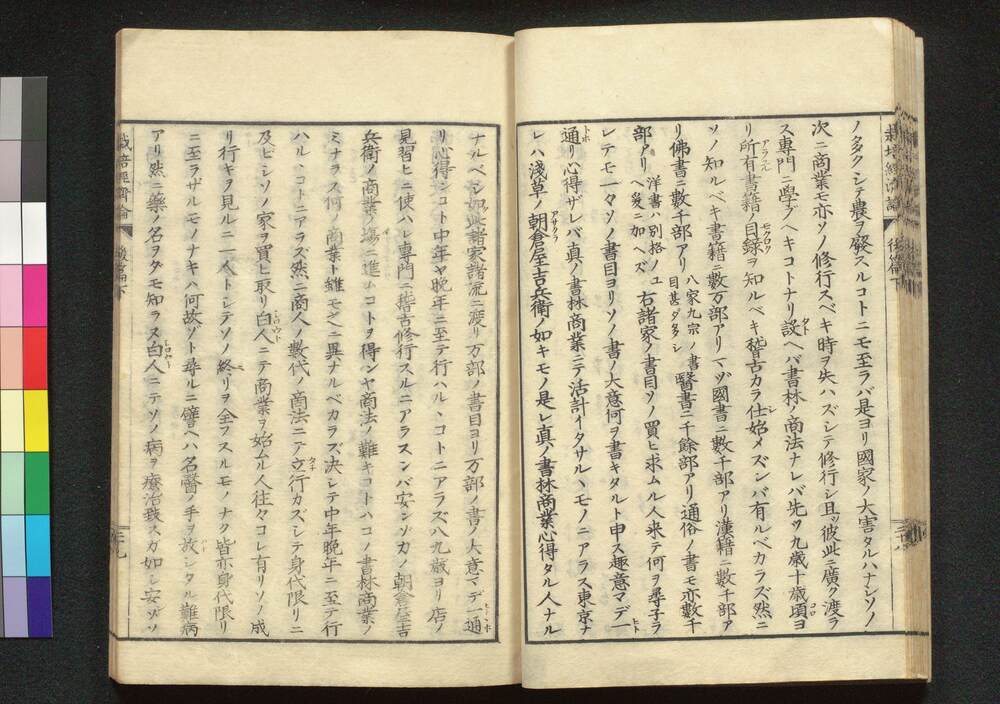 栽培經濟論 後篇下
ノタクシテ農ヲ廢スルコトニモ至ラバ是ヨリ國家ノ大害タルハナシソノ
次ニ商業モ亦ソノ修行スベキ時ヲ失ハズシテ修行シ且ッ彼此ニ廣ク渡ラ
ス專門ニ學ブヘキコトナリ設ヘバ書林ノ商法ナレバ先ヅ九歳十歳頃ヨ
リ所有書籍ノ目録ヲ知ルベキ稽古カラ仕始メズンバ有ルベカラズ然ニ
ソノ知ルベキ書籍ニ數万部アリマヅ國書ニ數千部アリ漢籍ニ數千部ア
リ佛書ニ數千部アリ八家九宗ノ書目甚ダタシ醫書ニ千餘部アリ通俗ノ書モ亦數千
部アリ洋書ハ別格ノユヘ爰ニ加ヘズ右諸家ノ書目ソノ買ヒ求ムル人来テ何ヲ尋子ラ
レテモ一々ソノ書目ヨリソノ書ノ大意何ヲ書キタルト申ス趣意マデ一
通リ心得ザレバ真ノ書林商業ニテ活計イタサルヽモノニアラス東京ナ
レハ淺草ノ朝倉屋吉兵衛ノ如キモノ是レ真ノ書林商業心得タル人ナル
ナルベシ如此諸家諸流ニ渡リ万部ノ書目ヨリ万部ノ書ノ大意マデ一通
リ心得ンコト中年ヤ晩年ニ至テ行ハルヽコトニアラズ八九歳ヨリ店ノ
見習ヒニ使ハレ專門ニ稽古修行スルニアラスンバ安ンゾカノ朝倉屋吉
兵衛ノ商業ノ塲ニ進ムコトヲ得ンヤ商法ノ難キコトハコノ書林商業ノ
ミナラス何ノ商業ト雖モ之ニ異ナルベカラズ決シテ中年晩年ニ至テ行
ハルヽコトニアラズ然ニ商人ノ數代ノ商法ニテ立行カズシテ身代限リニ
及ビシソノ家ヲ買ヒ取リ白人ニテ商業ヲ始ムル人往々コレ有リソノ成
リ行キヲ見ルニ一人トシテソノ終リヲ全フスルモノナク皆亦身代限リ
ニ至ラザルモノナキハ何故ソト尋ルニ譬ヘハ名醫ノ手ヲ放シタル難病
アリ然ニ藥ノ名ヲダモ知ラス白人ニテソノ病ヲ療治致スガ如シ安ンゾソ
栽培經濟論 後篇下